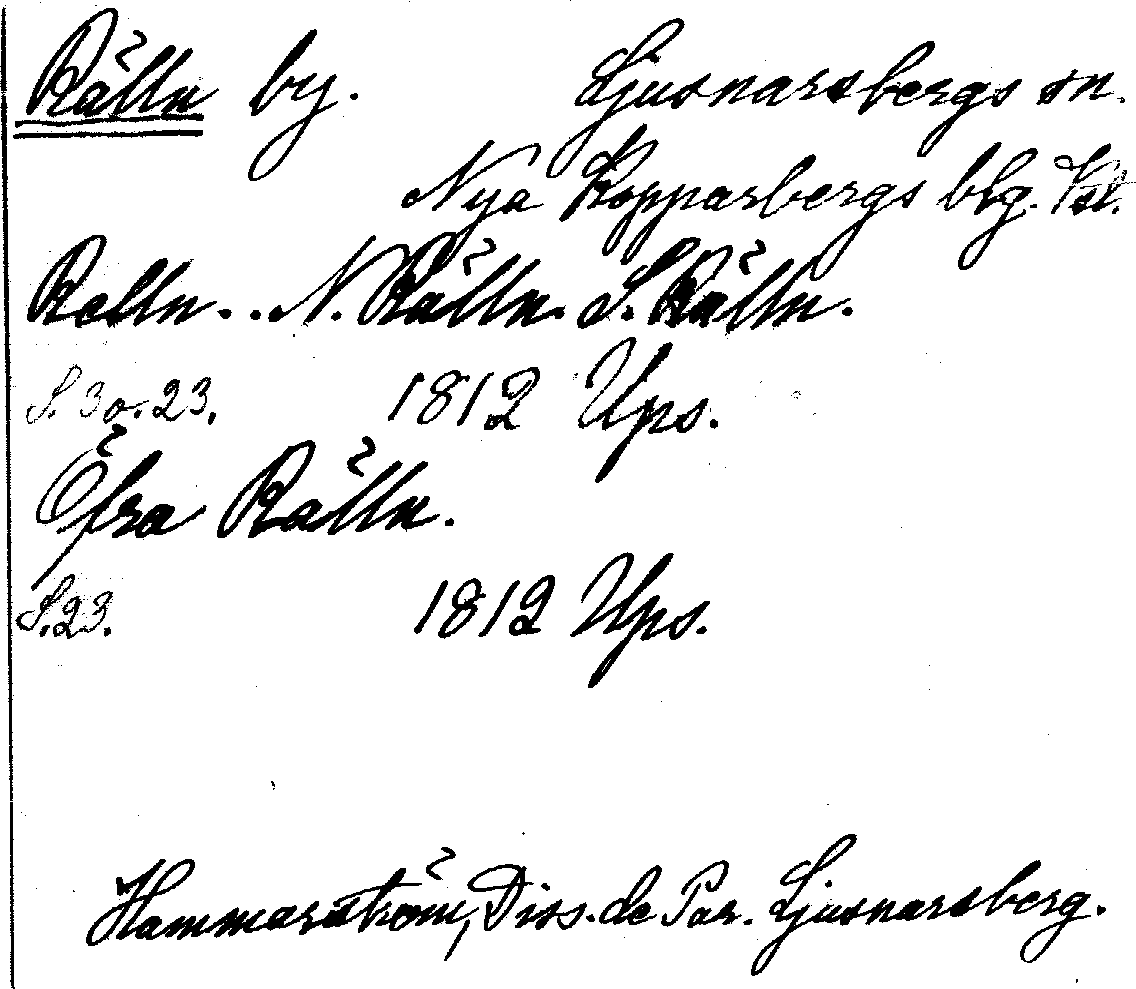 Rälln by. Ljusnarsbergs sn.
Nya Kopparbergs blg. Vstl.
Relln.. N. Rälln. S. Rälln.
S. 3 o. 23. 1812 Ups.
Öfra Rälln.
S. 23. 1812 Ups.
Hammarström, Diss. de Par. Ljusnarsberg.